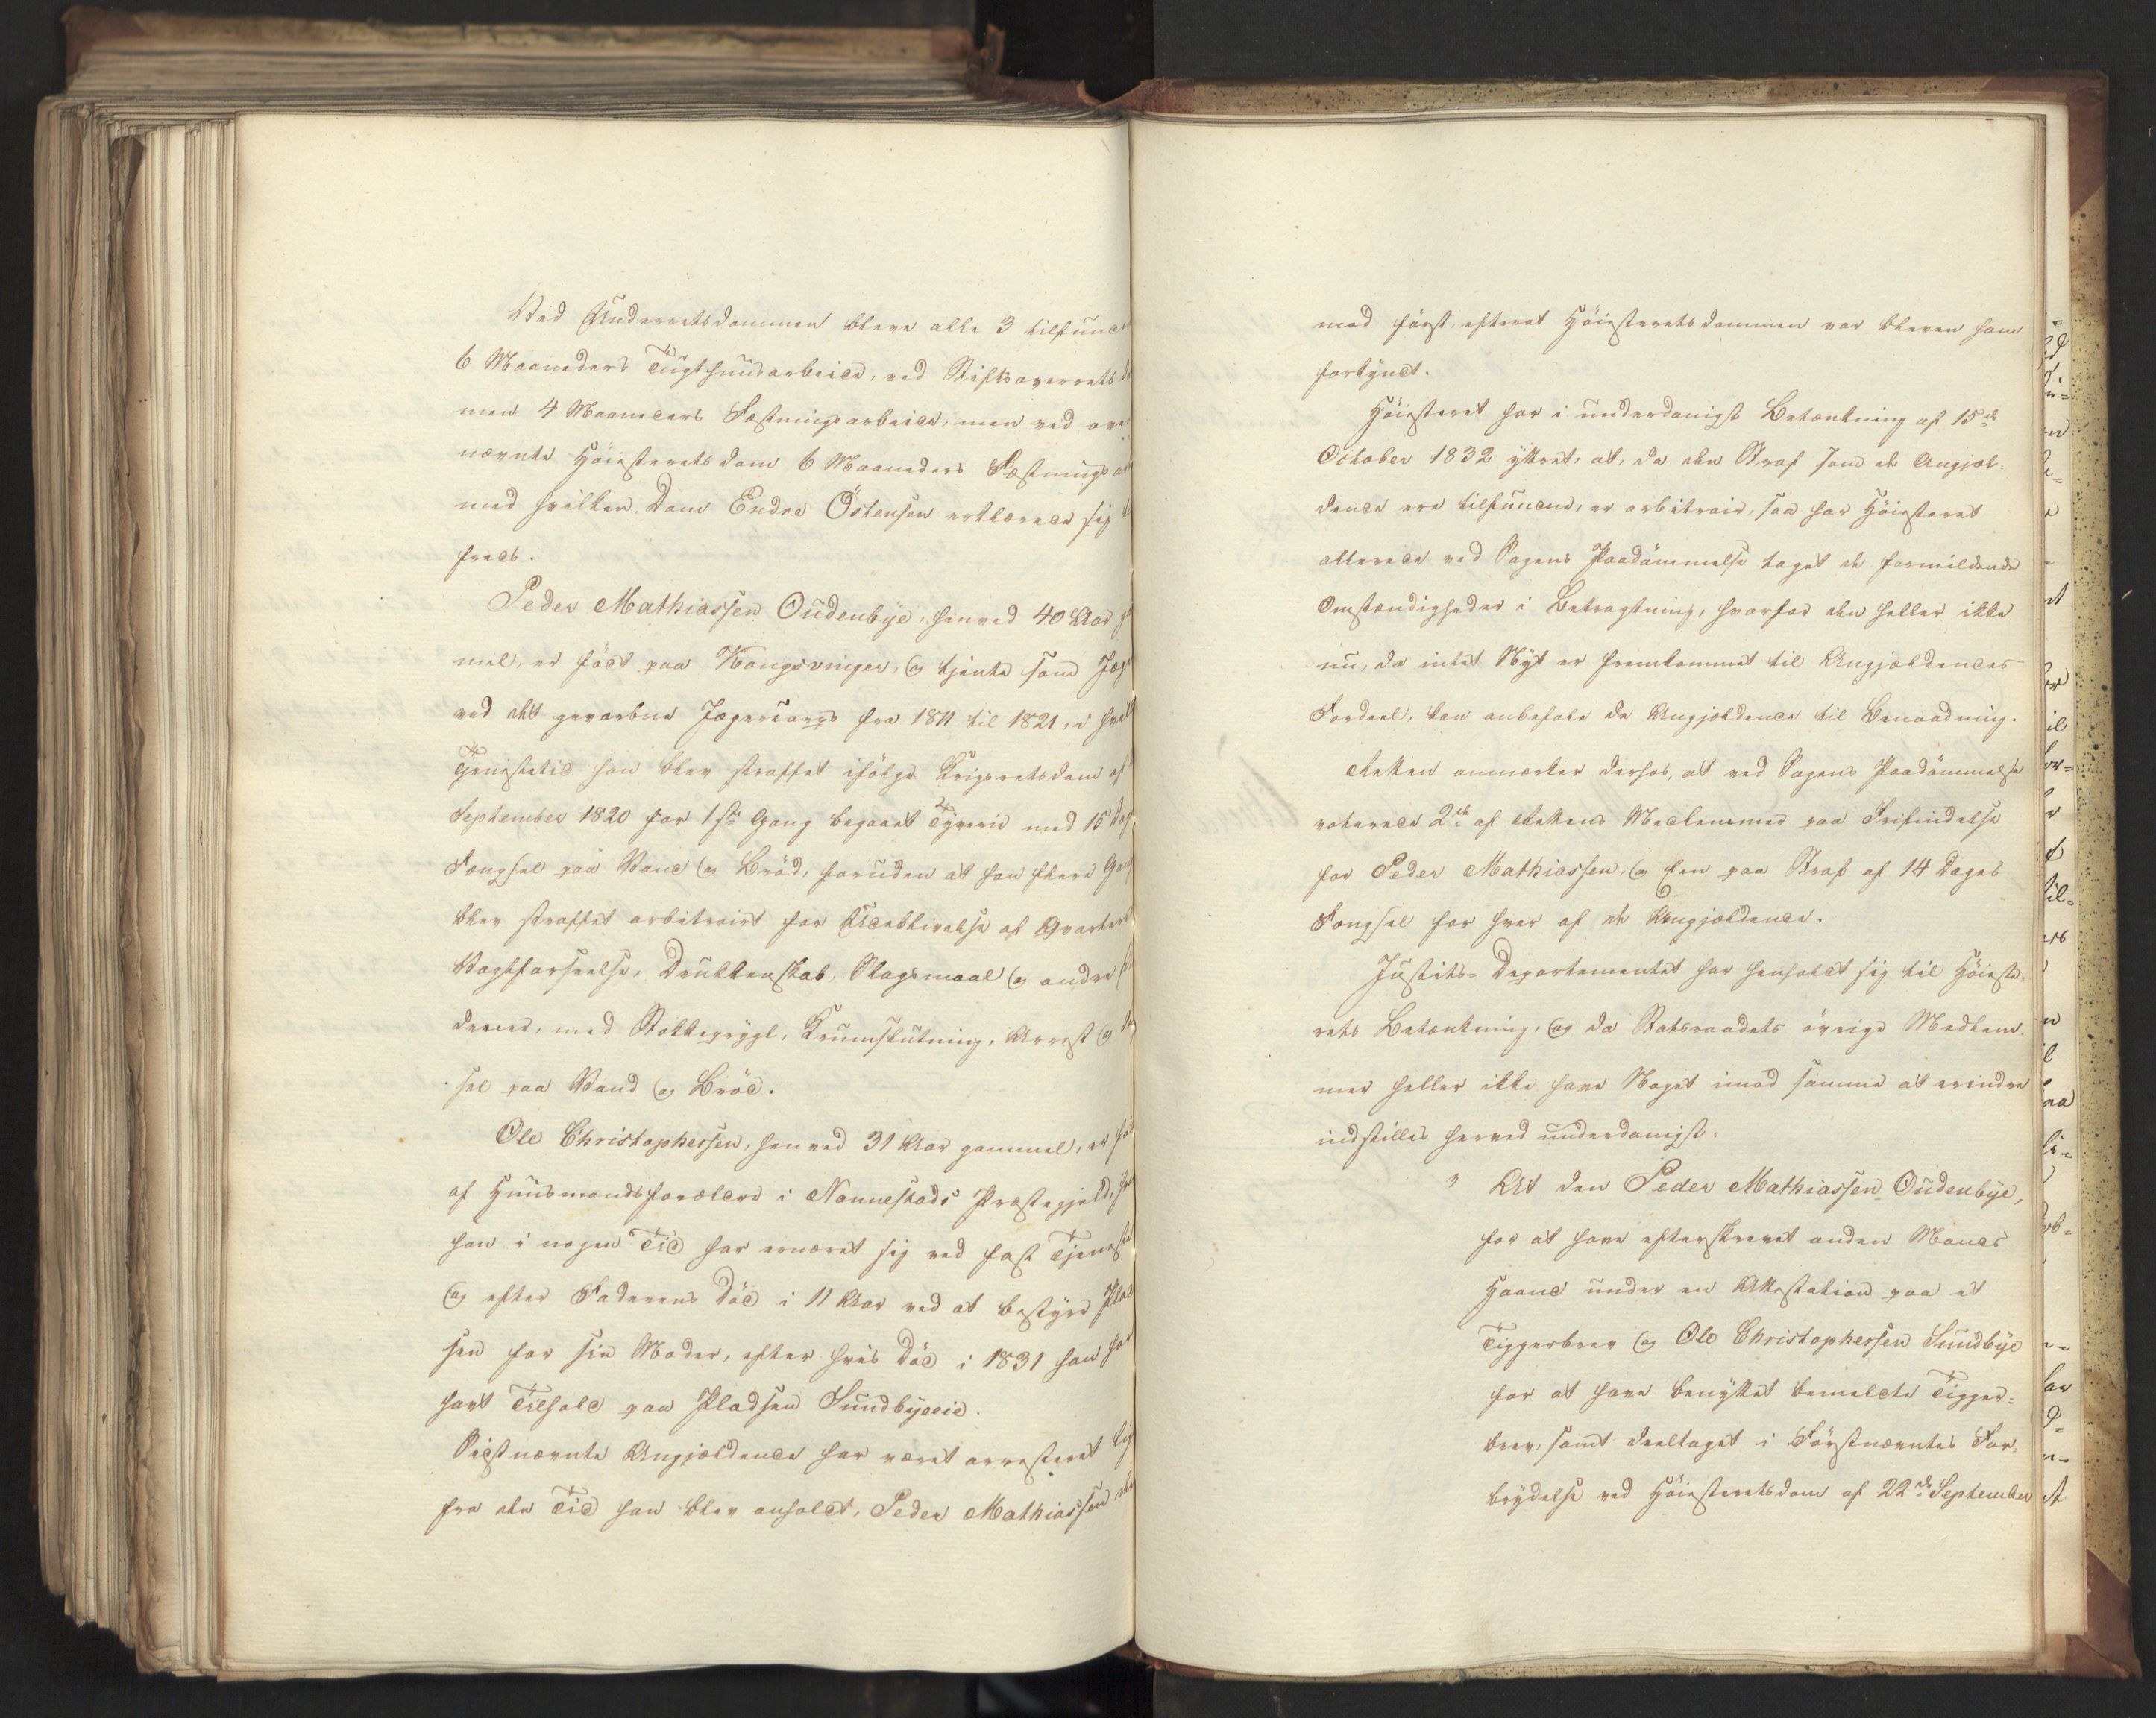 Ved Underretsdommen bleve alle 3 tilfund
6 Maaneders Tugthuusarbeide, ved Stiftsoverrets
men 4 Maaneders Fæstningsarbeide, men ved oven
nævnte Høiesteretsdom 6 Maaneders Fæstnings
med hvilken Dom Endre Östensen erklærede sig
freds.
Peder Mathiassen Oudenbye, henved 40 Aar
mel, er född paa Kongsvinger, og tjente som Jæg
ved det gevorbne Jægercorps fra 1811 til 1821, i
Tjenestetid han blev straffet ifölge Krigsretsdom af
September 1820 for 1ste Gang begaaet Tyverie med 15
Fængsel paa Vand og Bröd, foruden at han flere
blev straffet arbitrairt for Udeblivelse af Qvarteer
Vagtforseelse, Drukkenskab, Slagsmaal og andre
dener, med Stokkeprygl, Krumslutning, Arrest og
sel paa Vand og Bröd.
Ole Christophersen, henved 31 Aar gammel, er
af Huusmandsforældre i Nannestads Præstegjeld,
han i nogen Tid har ernæret sig ved fast Tjeneste
og efter Faderens Död i 11 Aar ved at bestyre Plad
sen for sin Moder, efter hvis Död i 1831 han har
havt Tilhold paa Pladsen Sundbyeeie.
Sidstnævnte Angjældende har været arresteret
fra den Tid han blev anholdt, Peder Mathiassen
mod först efterat Höiesteretsdommen var bleven ham
forkyndt.
Höiesteret har i underdanigst Betænkning af 15de
October 1832 yttret, at, da den Straf som de Angjæl-
dende ere tilfundne, er arbitrair, saa har Höiesteret
allerede ved Sagens Paadömmelse taget de formildende
Omstændigheder i Betragtning, hvorfor den heller ikke
nu, da intet Nyt er fremkommet til Angjældendes
Fordeel, kan anbefale de Angjældende til Benaadning.
Retten anmærker derhos, at ved Sagens Paadömmelse
voterede 2de af Rettens Medlemmer paa Frifindelse
for Peder Mathiassen, og een paa Straf af 14 Dages
Fængsel for hver af de Angjældende.
Justits-Departementet har henholdt sig til Höieste-
rets Betænkning, og da Statsraadets övrige Medlem-
mer heller ikke have Noget imod samme at erindre
indstilles herved underdanigst:
" At den Peder Mathiassen Oudenbye,
for at have efterskrevet anden Mands
Haand under en Attestation paa et
Tiggerbrev og Ole Christophersen Sundbye
for at have benyttet bemeldte Tigger-
brev, samt deeltaget i Förstnævntes For-
brydelse ved Höiesteretsdom af 22de September